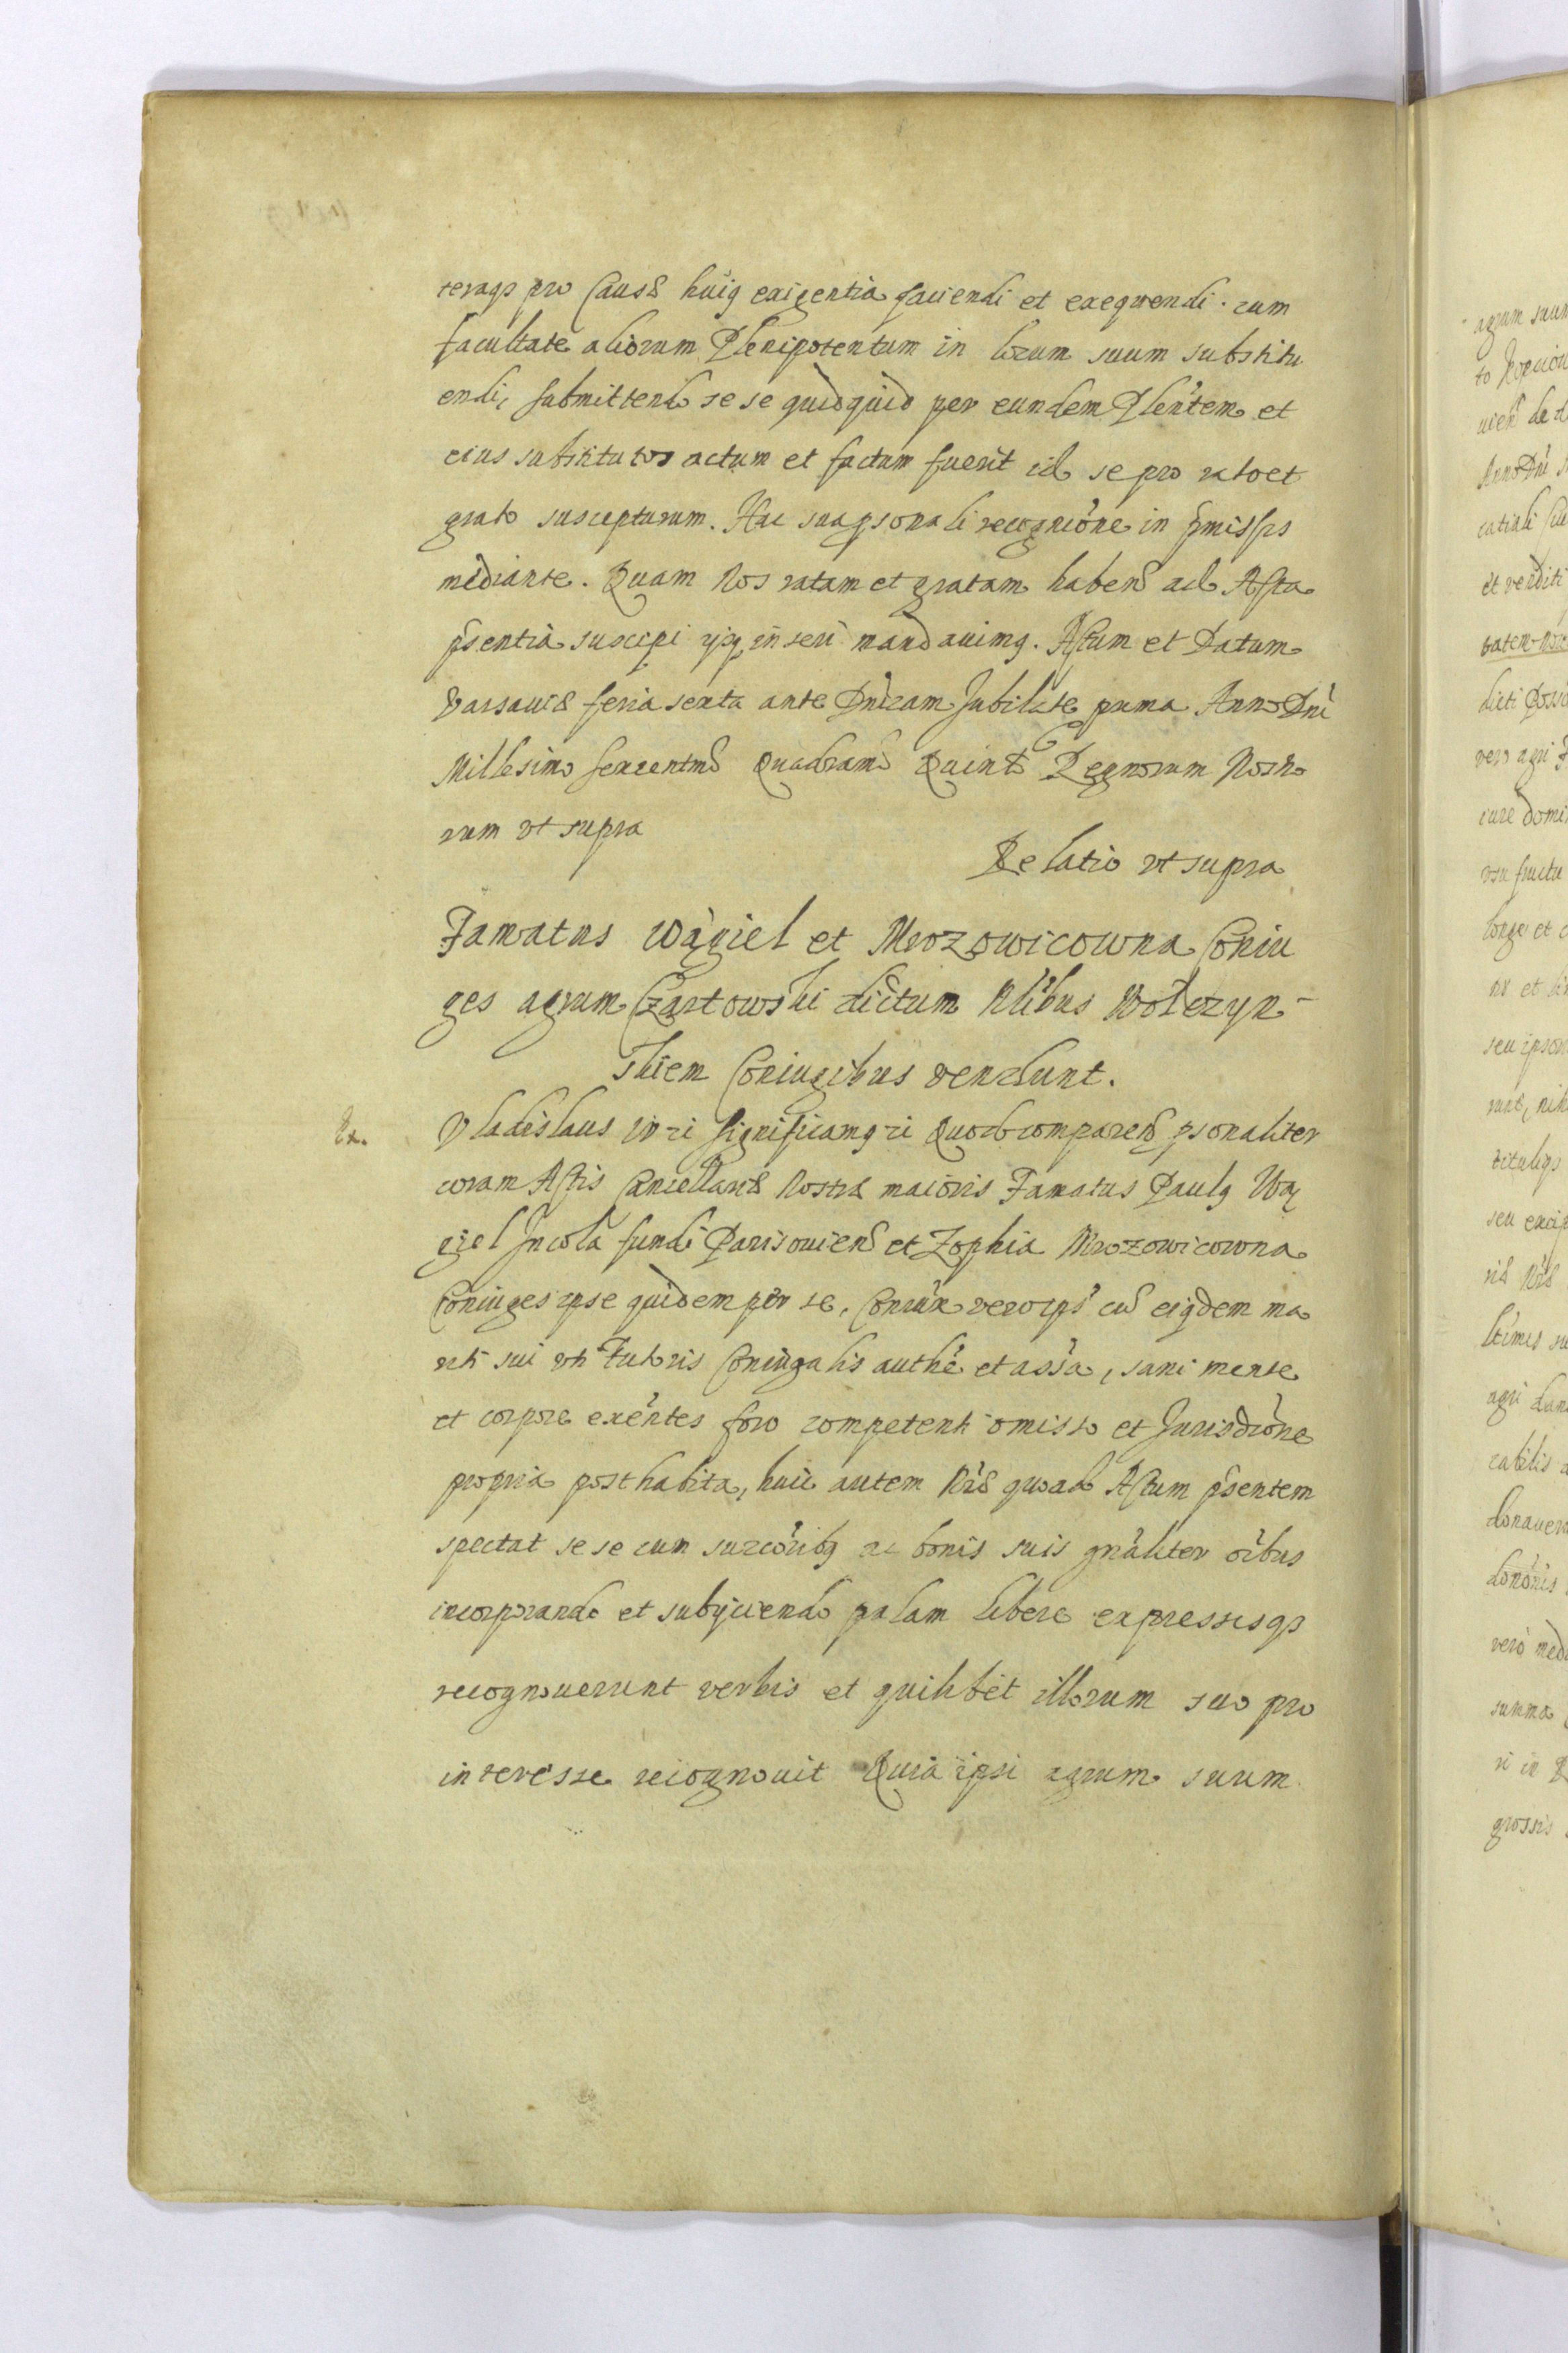 teraqз pro Causæ huiq exigentia faciendi et exequendi. cum
facultate aliorum Plenipotentum in locum suum substitu
endi, submittendo se se quidquid per eundem Plen̄tem et
eius substitutos actum et factum fuerit id se pro rato et
grato suscepturum. Hac sua psonali recognīone in p̄missis
mediante. Quam Nos ratam et gratam haben̄ ad Acta
p̄sentia suscipi ijsq inseri mandauimq. Actum et Datum
Varsauiæ feria sexta ante Dn̄icam Jubilate prima Anno Dn̄i
Millesimo sexcentmo Quadramo Quinto Regnorum Nostro
rum vt supra
Relatio vt supra
Famatus Wągiel et Mrozowicowna Coniu
ges agrum Czartowski dictum Nlibus Wołczyn-
skiem Coniugibus vendunt.
Ex. Vladislaus IV ... Significamq ... Quod comparen̄ psonaliter
coram Actis Cancellariæ Nostræ maioris Famatus Paulq Wą
giel Incola fundi Parisouien̄ et Zophia Mrozowicowna
Coniuges ipse quidem per se, Coniux vero ips' cū eiqdem ma
riti sui vti Tutoris Coniugalis authē et assa, sani mente
et corpore exēntes foro competenti omisso et Jurisdīone
propria posthabita, huic autem Nræ quoad Actum p̄sentem
spectat se se cum succōribq ac bonis suis gnāliter oībus
incorporando et subijciendo palam libere expressisqз
recognouerunt verbis et quilibet illorum suo pro
interesse recognouit Quia ipsi agrum suum